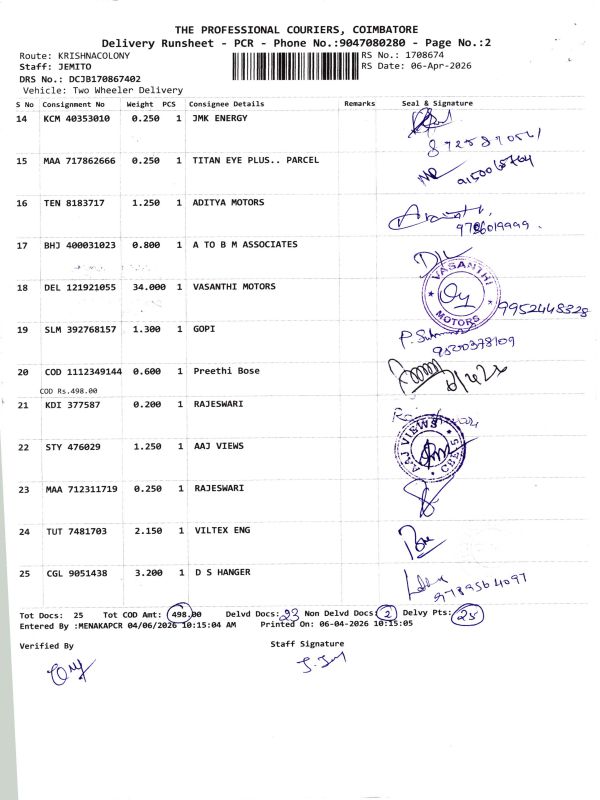 THE PROFESSIONAL COURIERS, COIMBATORE
Delivery Runsheet - PCR - Phone No.:9047080280 - Page No.:2
Route: KRISHNACOLONY RS No.: 1708674
Staff: JEMITO RS Date: 06-Apr-2026
DRS No.: DCJB170867402
Vehicle: Two Wheeler Delivery
S No Consignment No Weight PCS Consignee Details Remarks Seal & Signature
14 KCM 40353010 0.250 1 JMK ENERGY
15 MAA 717862666 0.250 1 TITAN EYE PLUS.. PARCEL
16 TEN 8183717 1.250 1 ADITYA MOTORS
17 BHJ 400031023 0.800 1 A TO B M ASSOCIATES
18 DEL 121921055 34.000 1 VASANTHI MOTORS
VASANTHI MOTORS 9952448328
19 SLM 392768157 1.300 1 GOPI
20 COD 1112349144 0.600 1 Preethi Bose
COD Rs.498.00
21 KDI 377587 0.200 1 RAJESWARI
22 STY 476029 1.250 1 AAJ VIEWS
AAJ VIEWS
23 MAA 712311719 0.250 1 RAJESWARI
24 TUT 7481703 2.150 1 VILTEX ENG
25 CGL 9051438 3.200 1 D S HANGER
9789564097
Tot Docs: 25 Tot COD Amt: 498.00 Delvd Docs: 23 Non Delvd Docs: 2 Delvy Pts: 25
Entered By :MENAKAPCR 04/06/2026 10:15:04 AM Printed On: 06-04-2026 10:15:05
Verified By Staff Signature